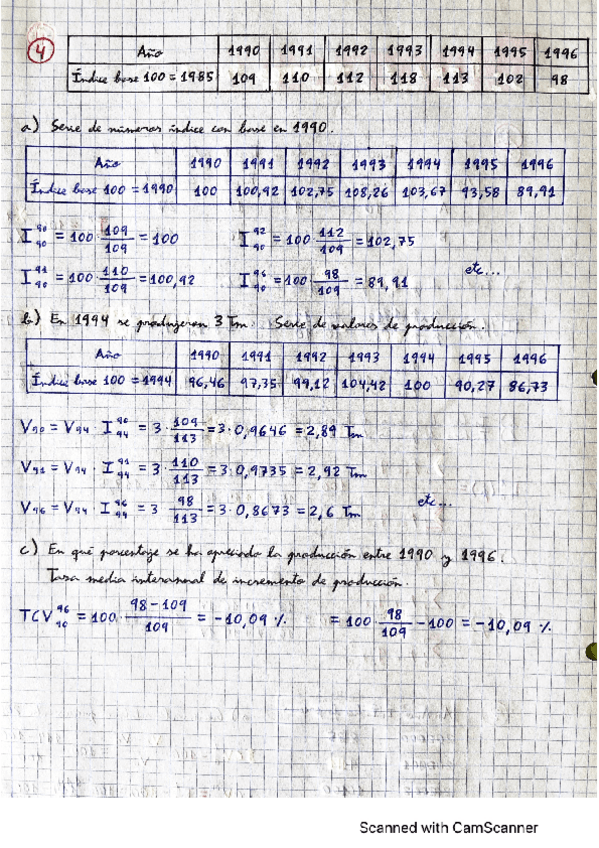 4
Año 1990 1991 1992 1993 1994 1995 1996
Índice base 100 = 1985 109 110 112 118 113 102 98
a) Serie de números índice con base en 1990.
Año 1990 1991 1992 1993 1994 1995 1996
Índice base 100 = 1990 100 100,92 102,75 108,26 103,67 93,58 89,91
I 90/90 = 100 · 109/109 = 100 I 92/90 = 100 · 112/109 = 102,75
I 91/90 = 100 · 110/109 = 100,92 I 96/90 = 100 · 98/109 = 89,91 etc...
b) En 1994 se produjeron 3 Tm. Serie de valores de producción.
Año 1990 1991 1992 1993 1994 1995 1996
Índice base 100 = 1994 96,46 97,35 99,12 104,42 100 90,27 86,73
V90 = V94 · I 90/94 = 3 · 109/113 = 3 · 0,9646 = 2,89 Tm
V91 = V94 · I 91/94 = 3 · 110/113 = 3 · 0,9735 = 2,92 Tm
V96 = V94 · I 96/94 = 3 · 98/113 = 3 · 0,8673 = 2,6 Tm etc...
c) En qué porcentaje se ha apreciado la producción entre 1990 y 1996.
Tasa media interanual de incremento de producción.
TCV 96/90 = 100 · 98 - 109/109 = -10,09 % = 100 · 98/109 - 100 = -10,09 %
Scanned with CamScanner